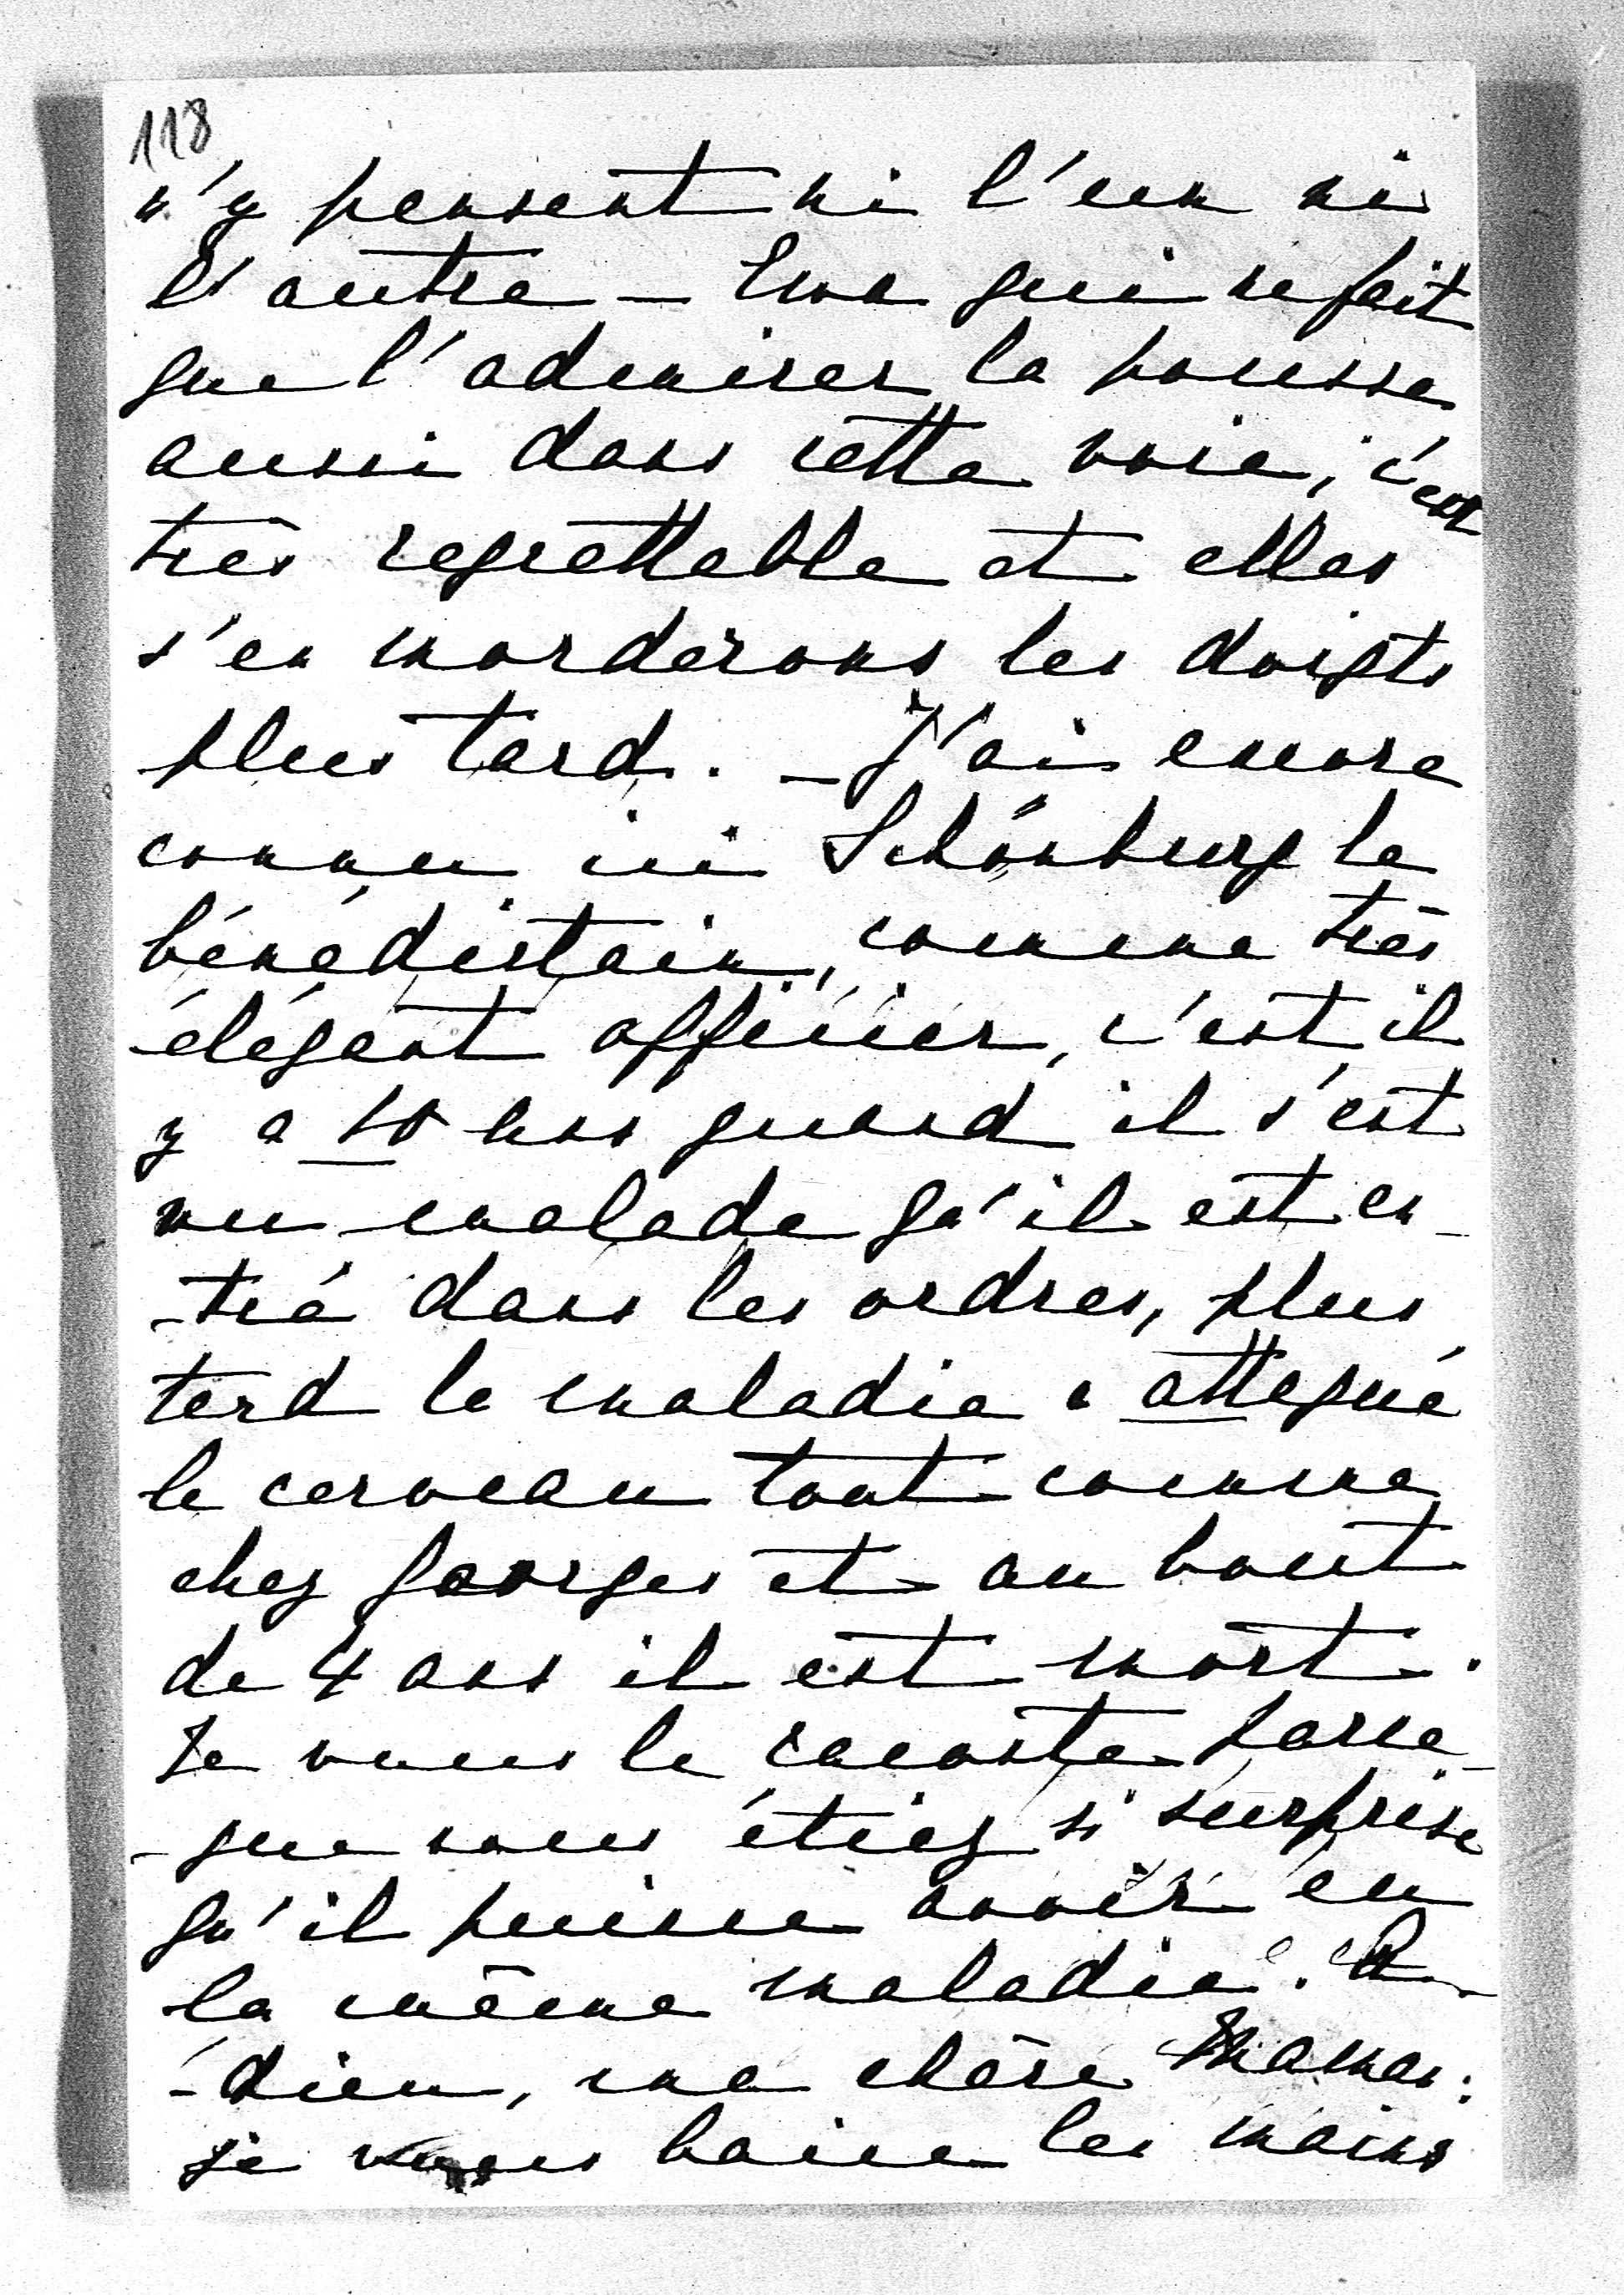 118
n'y pensent ni l'un ni
l'autre — Ena qui ne fait
que l'admirer la pousse
aussi dans cette voie, c'est
très regrettable et elles
s'en morderons les doigts
plus tard. — J'ai encore
connu ici Schönburg le
bénédictain, comme très
élégant officier, c'est il
y a 10 ans quand il s'est
vu malade qu'il est en-
-tré dans les ordres, plus
tard la maladie a attaqué
le cerveau tout comme
chez Georges et au bout
de 4 ans il est mort.
Je vous le raconte parce-
-que vous étiez si surprise
qu'il puisse avoir eu
la même maladie. A-
-dieu, ma chère Maman:
je vous baise les mains